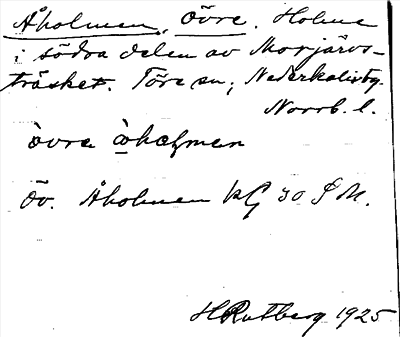 Åholmen, Övre. Holme
i södra delen av Morjärvs-
träsket. Töre sn; Nederkalixby.
Norrb. l.
òvrə
Öv. Åholmen kG 30 S M.
H Rutberg 1925